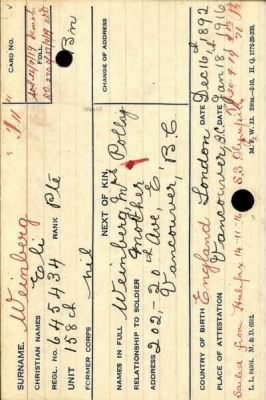 SURNAME. Weinberg
CHRISTIAN NAMES Eli
REGL. No. 645434 RANK Pte
UNIT 158th
FORMER CORPS nil
CARD NO.
FOLL.
CHANGE OF ADDRESS
NEXT OF KIN.
NAMES IN FULL Weinberg Mrs Polly
RELATIONSHIP TO SOLDIER mother
ADDRESS 202, - 20th Ave, E,
Vancouver, B.C
COUNTRY OF BIRTH England London DATE Dec 16th 1892
PLACE OF ATTESTATION Vancouver, B.C. DATE Jan 18th 1916
Sailed from Halifax 14-11-16 S.S. Olympic